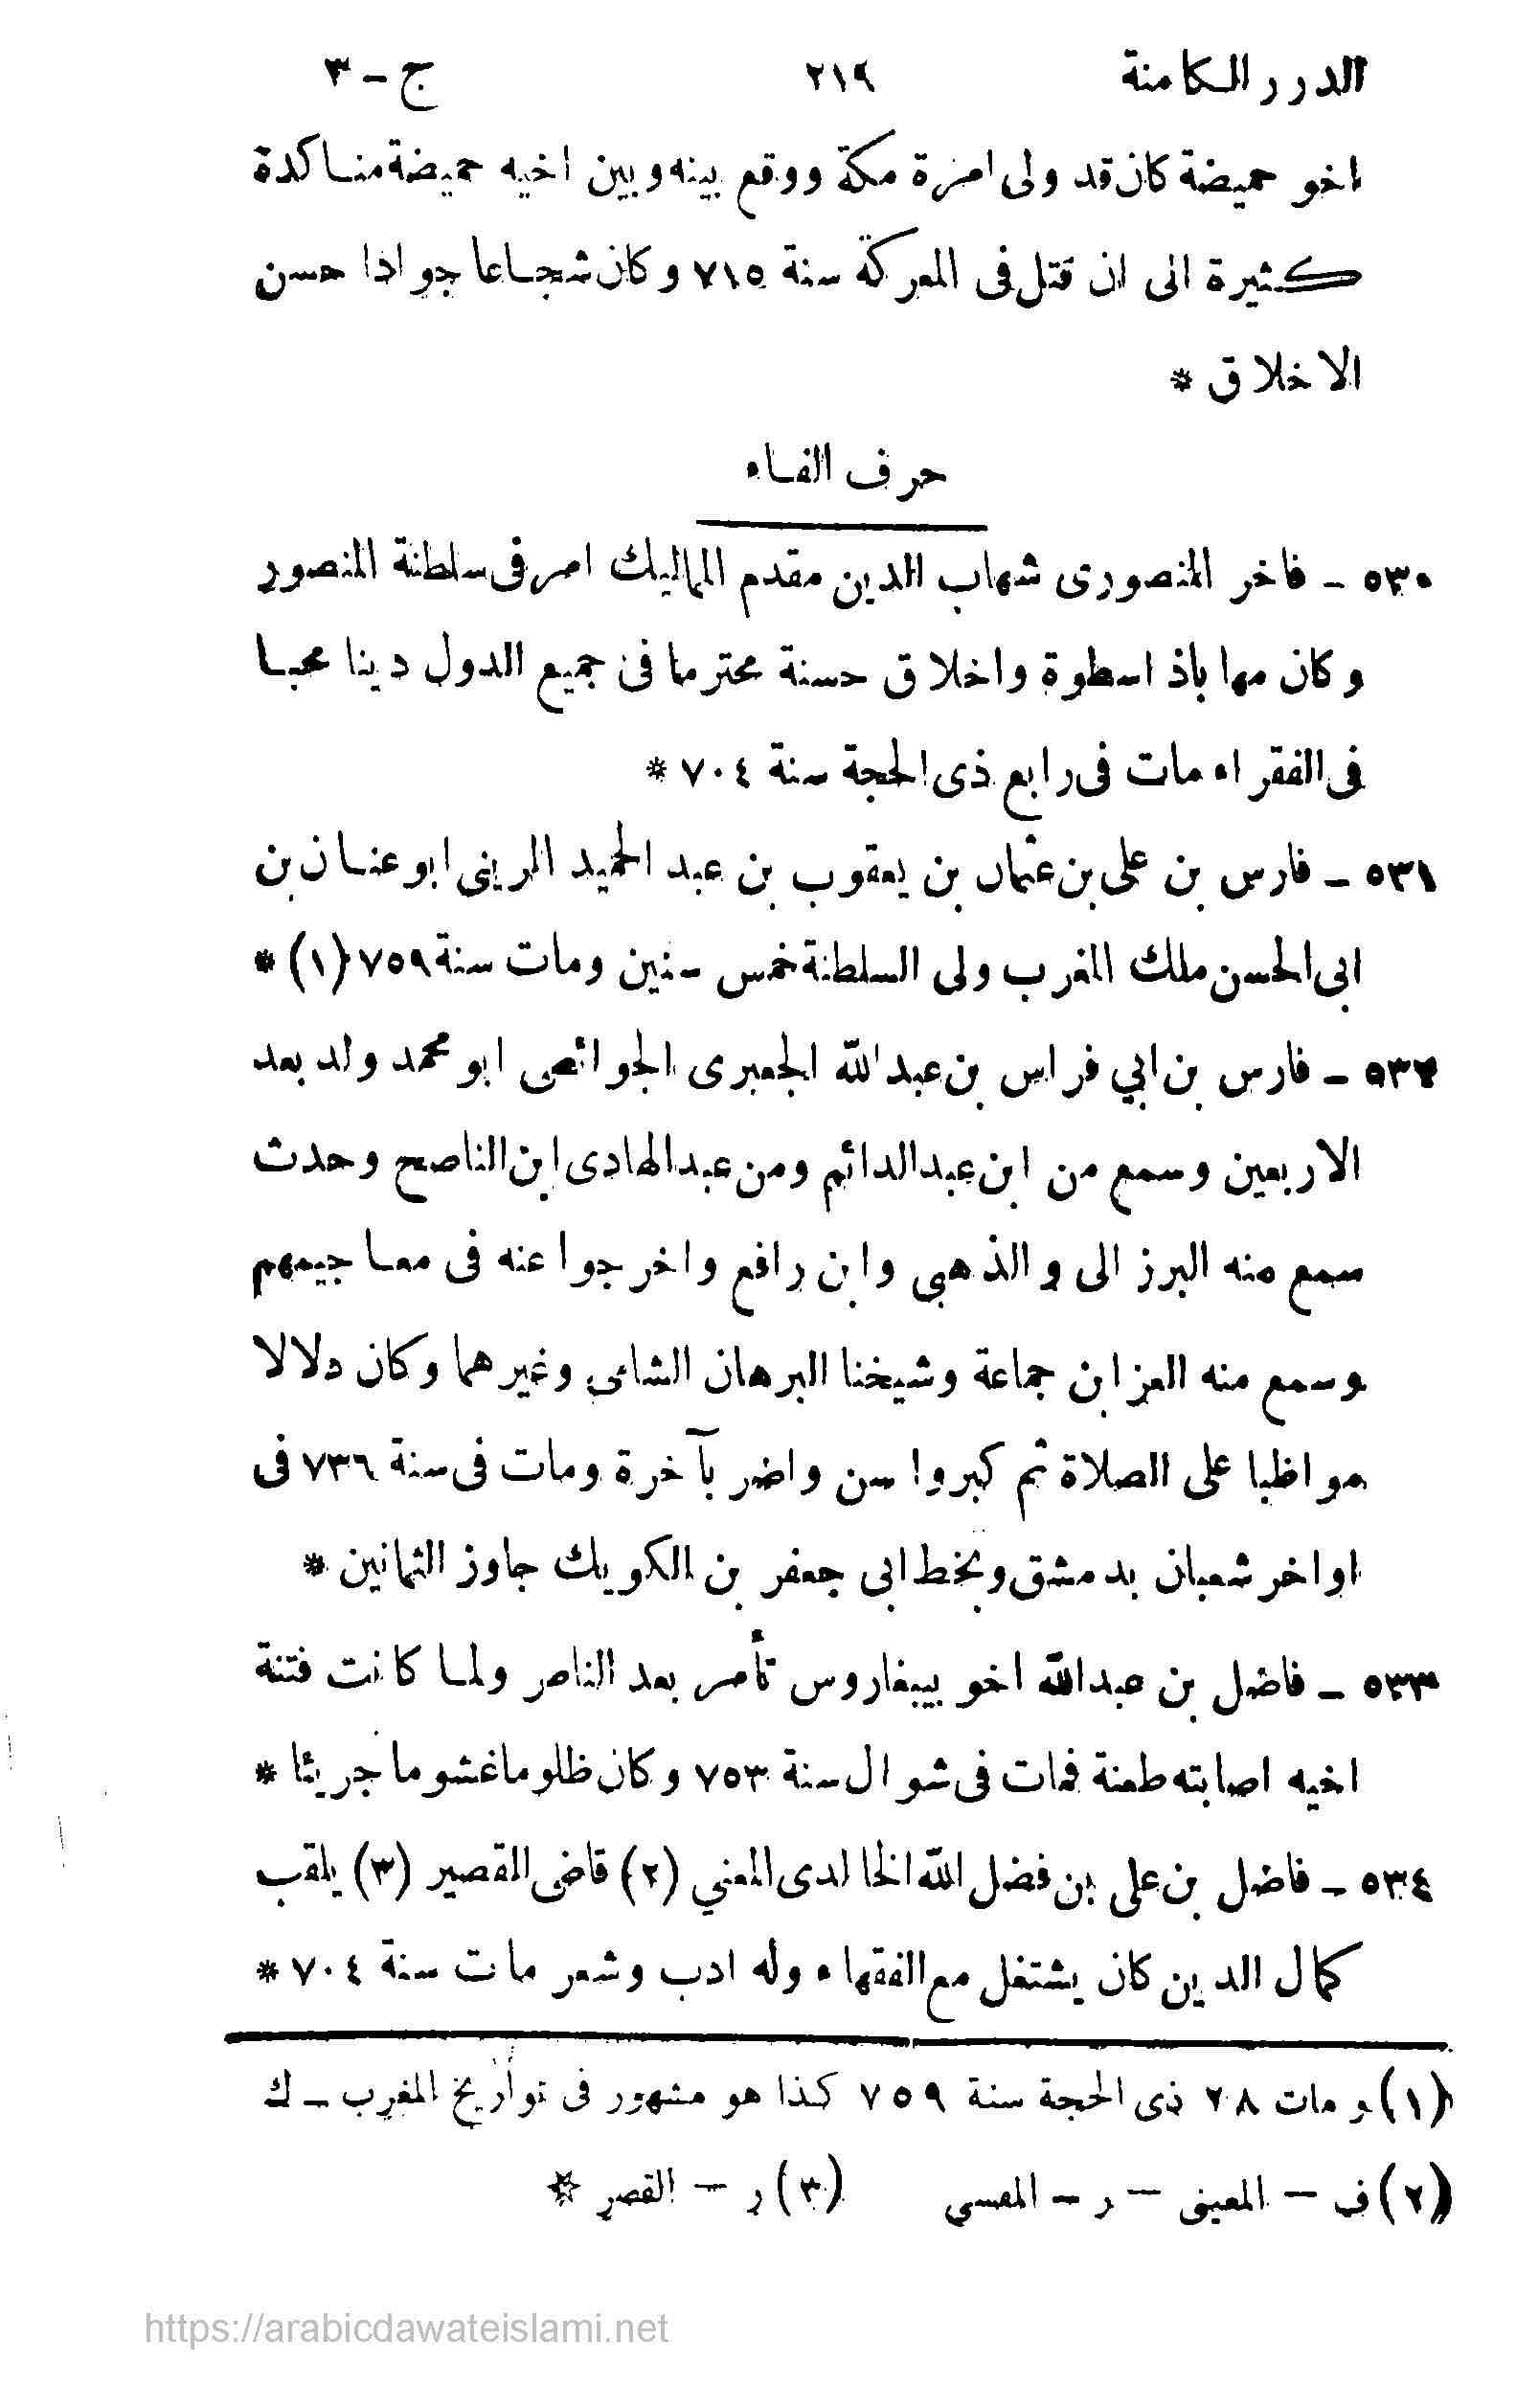 الدرر الكامنة ٢١٩ ج - ٣
اخو حميضة كان قد ولى امرة مكة ووقع بينه وبين اخيه حميضة مناكدة
كثيرة الى ان قتل فى المعركة سنة ٧١٥ وكان شجاعا جوادا حسن
الاخلاق *
حرف الفاء
٥٣٠ - فاخر المنصورى شهاب الدين مقدم المماليك امر فى سلطنة المنصور
وكان مهابا ذا سطوة واخلاق حسنة محترما فى جميع الدول دينا محبا
فى الفقراء مات فى رابع ذى الحجة سنة ٧٠٤ *
٥٣١ - فارس بن على بن عثمان بن يعقوب بن عبد الحميد المرينى ابو عنان بن
ابى الحسن ملك المغرب ولى السلطنة خمس سنين ومات سنة ٧٥٩ (١) *
٥٣٢ - فارس بن ابي فراس بن عبد الله الجعبرى الجوائصى ابو محمد ولد بعد
الاربعين وسمع من ابن عبد الدائم ومن عبد الهادى ابن الناصح وحدث
سمع منه البرزالى والذهبى وابن رافع واخرجوا عنه فى معاجيمهم
وسمع منه العز ابن جماعة وشيخنا البرهان الشامى وغيرهما وكان دلالا
مواظبا على الصلاة ثم كبر واسن واضر بآخرة ومات فى سنة ٧٣٦ فى
اواخر شعبان بدمشق وبخط ابى جعفر بن الكويك جاوز الثمانين *
٥٣٣ - فاضل بن عبد الله اخو بيبغاروس تأمر بعد الناصر ولما كانت فتنة
اخيه اصابته طعنة فمات فى شوال سنة ٧٥٣ وكان ظلوما غشوما جريئا *
٥٣٤ - فاضل بن على بن فضل الله الخالدى المغني (٢) قاضى القصير (٣) يلقب
كمال الدين كان يشتغل مع الفقهاء وله ادب وشعر مات سنة ٧٠٤ *
(١) و مات ٢٨ ذى الحجة سنة ٧٥٩ كذا هو مشهور فى تواريخ المغرب - ك
(٢) ف - المعينى - ر - المعسي (٣) ر - القصر *
https://arabicdawateislami.net